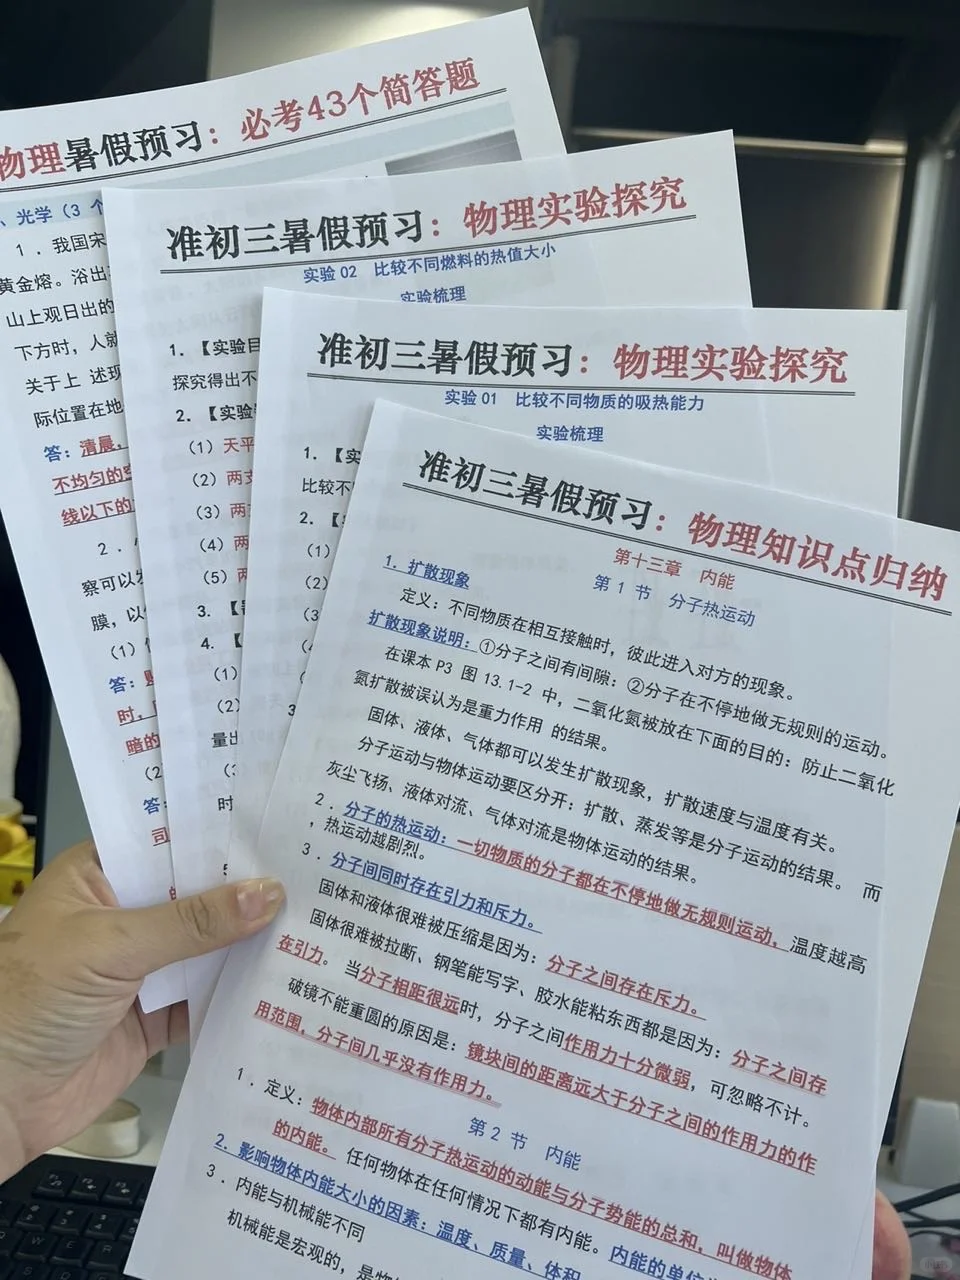 物理暑假预习：必考43个简答题
、光学（3 个
1．我国宋
黄金熔。浴出
山上观日出的
下方时，人就
关于上 述现
际位置在地
答：清晨，
不均匀的空
线以下的
2．
察可以发
膜，以
（1）
答：
时，
暗的
（2
答：
司
的
准初三暑假预习：物理实验探究
实验 02 比较不同燃料的热值大小
实验梳理
1.【实验目
探究得出不
2.【实验
（1）天平
（2）两支
（3）两
（4）两
（5）两
3.【
4.【
（1）
（2）
量出
（3
时
准初三暑假预习：物理实验探究
实验 01 比较不同物质的吸热能力
实验梳理
1.【实
比较不
2.【
（1）
（2）
（3
准初三暑假预习：物理知识点归纳
第十三章 内能
第 1 节 分子热运动
1. 扩散现象
定义：不同物质在相互接触时，彼此进入对方的现象。
扩散现象说明：①分子之间有间隙；②分子在不停地做无规则的运动。
在课本 P3 图 13.1-2 中，二氧化氮被放在下面的目的：防止二氧化
氮扩散被误认为是重力作用 的结果。
固体、液体、气体都可以发生扩散现象，扩散速度与温度有关。
分子运动与物体运动要区分开：扩散、蒸发等是分子运动的结果。 而
灰尘飞扬、液体对流、气体对流是物体运动的结果。
2．分子的热运动：一切物质的分子都在不停地做无规则运动，温度越高
，热运动越剧烈。
3．分子间同时存在引力和斥力。
固体和液体很难被压缩是因为：分子之间存在斥力。
固体很难被拉断、钢笔能写字、胶水能粘东西都是因为：分子之间存
在引力。 当分子相距很远时，分子之间作用力十分微弱，可忽略不计。
破镜不能重圆的原因是：镜块间的距离远大于分子之间的作用力的作
用范围，分子间几乎没有作用力。
第 2 节 内能
1．定义：物体内部所有分子热运动的动能与分子势能的总和，叫做物体
的内能。 任何物体在任何情况下都有内能。内能的单位
2. 影响物体内能大小的因素：温度、质量、体积
3．内能与机械能不同
机械能是宏观的，是物